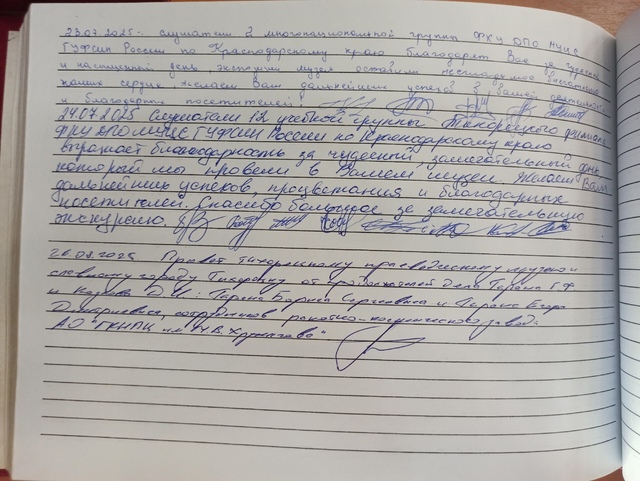 23.07.2025г. слушатели 2 многонациональной группы ФКУ ДПО МУЦ
ГУФСИН России по Краснодарскому краю благодарят Вас за чудесный
и насыщенный день, экспонаты музея оставили неизгладимое впечатление
наших сердцах, желаем Вам дальнейших успехов в вашей деятельности
и благодарных посетителей!
24.07.2025 Слушатели 12 учебной группы Тихорецкого филиала
ФКУ ДПО МУЦ ГУФСИН России по Краснодарскому краю
выражает благодарность за чудесный, замечательный день
который мы провели в Вашем музеи. Желаем Вам
дальнейших успехов, процветания и благодарных
посетителей. Спасибо большое за замечательную
экскурсию.
26.08.2025 Привет тихорецкому краеведческому музею и
славному городу Тихорецку от продолжателей Дела
и Козлова Д.И.: Бориса Сергеевича и Егора
сотрудников ракетно-космического завода
АО "ГКНПЦ им. М.В. Хруничева"